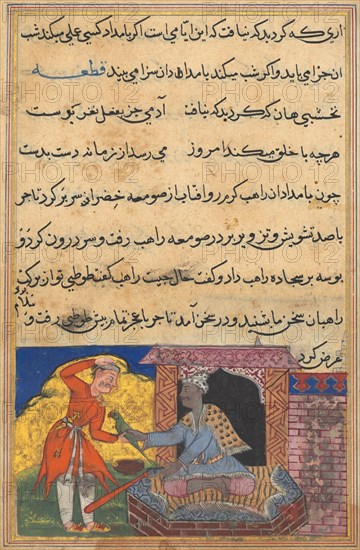 اری که کرد بد که نیافت که این ایامی است اگر بامداد کسی عملی میکند شب
ان جزا می یابد و اگر شب میکند بامدادان سزا می بیند قطعه
نخشبی هان که کرد بد که نیافت آدمی جز بفعل نغز نکوست
هرچه با خلق میکند امروز می رسد از زمانه دست بدست
چون بامدادان راهب کرم رو افتاب از صومعه خضرا سر بر کرد تاجر
با صد تشویش و تز بر در صومعه راهب رفت و سر درون کرد و
بوسه بر سجاده راهب داد و گفت حال چیست راهب گفت طوطی تو از بزرگ
راهبان سخن ما شنید و در سخن آمد تاجر با عجز تمام پیش طوطی رفت و
عرض کرد